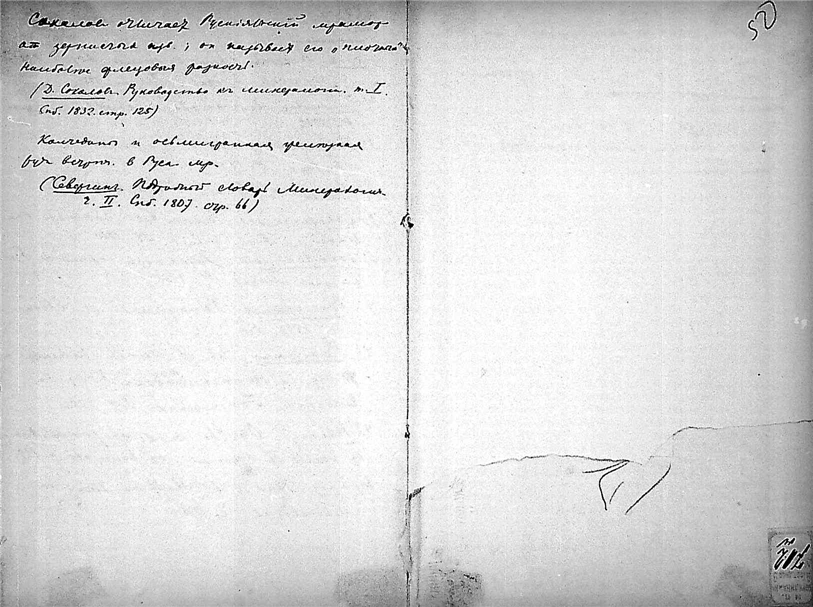 Соколов отличает Рускіяльскій мрамор
от зернистых изв.; он называет его
наиболѣе флецовыя разност.
(Д. Соколов. Руководство къ минералогіи. т. I.
Спб. 1832. стр. 125)
Колчеданы и осьмигранная
встрѣч. в Руск. мр.
(Севергинъ. Подробный словарь Минералогич.
ч. II. Спб. 1807. стр. 66)
52